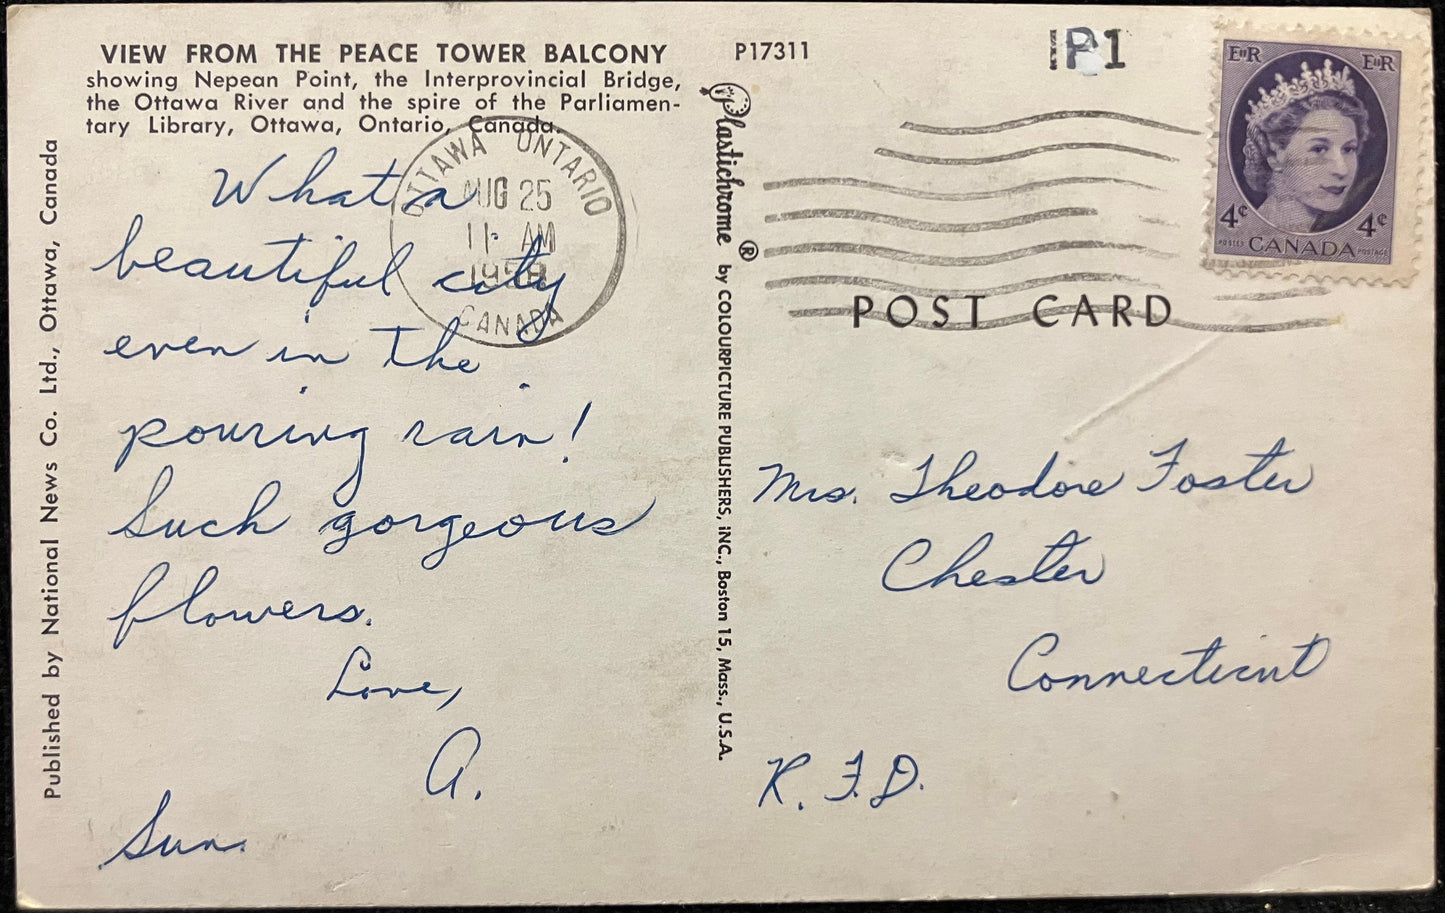 VIEW FROM THE PEACE TOWER BALCONY
showing Nepean Point, the Interprovincial Bridge,
the Ottawa River and the spire of the Parliamen-
tary Library, Ottawa, Ontario, Canada.
What a
beautiful city
even in the
pouring rain!
Such gorgeous
flowers.
Love,
A.
Sun.
Published by National News Co. Ltd., Ottawa, Canada
OTTAWA ONTARIO
AUG 25
11 AM
1958
CANADA
P17311
Plastichrome ® by COLOURPICTURE PUBLISHERS, INC., Boston 15, Mass., U.S.A.
1P1
EIIR EIIR
4¢ 4¢
POSTES CANADA POSTAGE
POST CARD
Mrs. Theodore Foster
Chester
Connecticut
R. F. D.